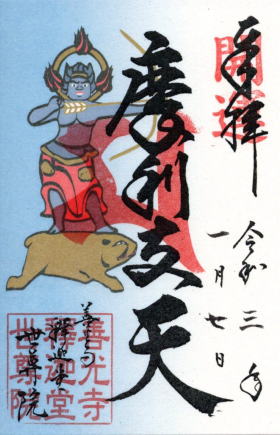 奉拝
開運
令和三年
一月七日
摩利支天
善光寺
釋迦堂
世尊院
善光寺
釋迦堂
世尊院